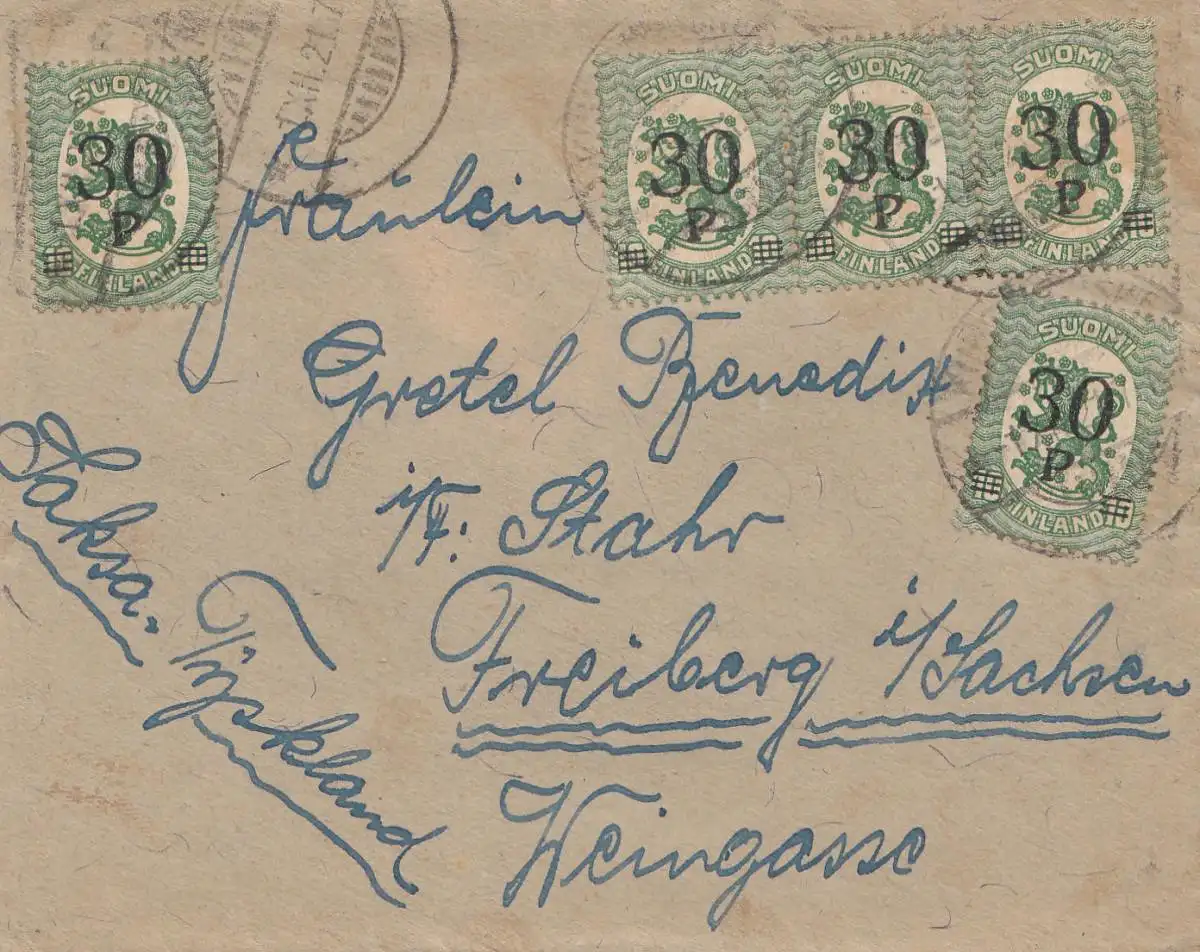 SUOMI
30
P
FINLAND
XII.21.7
SUOMI SUOMI SUOMI
30 30 30
P P P
FINLAND FINLAND FINLAND
SUOMI
30
P
FINLAND
Fräulein
Gretel Benedix
i/F. Stahr
Freiberg i/Sachsen
Weingasse
Saksa.
Tyskland